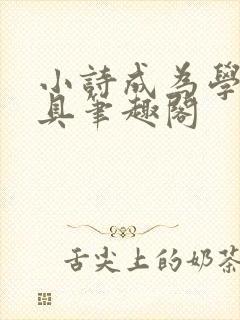 小詩成為學
具筆趣閣
舌尖上的奶茶